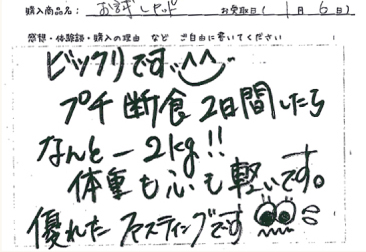 購入商品名: お試しセット お受取日( 1月6日)
感想・体験談・購入の理由 など ご自由に書いてください
ビックリです^^
プチ断食2日間したら
なんと-2kg!!
体重も心も軽いです。
優れたファスティングです